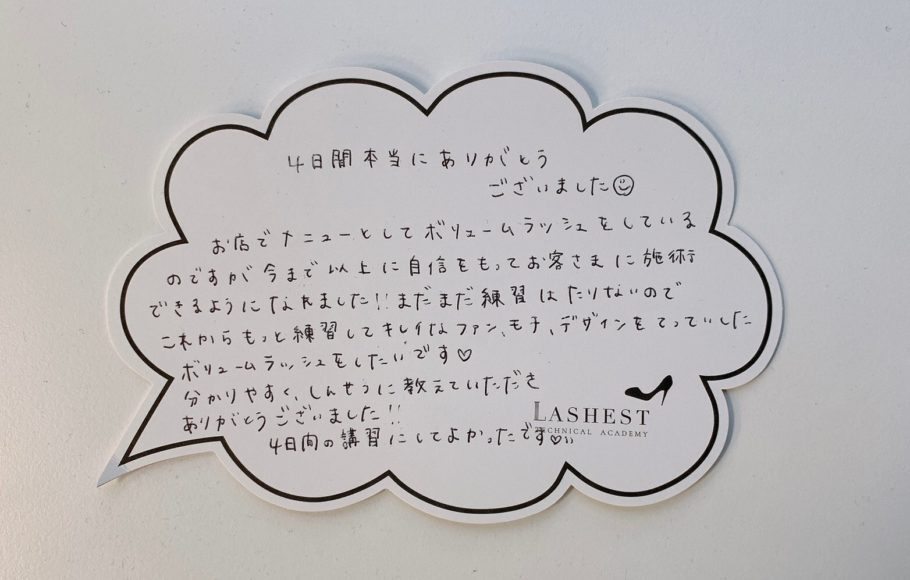 4日間本当にありがとう
ございました☺
お店でメニューとしてボリュームラッシュをしている
のですが今まで以上に自信をもってお客さまに施術
できるようになれました!!まだまだ練習はたりないので
これからもっと練習してキレイなファン、モチ、デザインをてっていした
ボリュームラッシュをしたいです♡
分かりやすく、しんせつに教えていただき
ありがとうございました!!
4日間の講習にしてよかったです♡
LASHEST
TECHNICAL ACADEMY